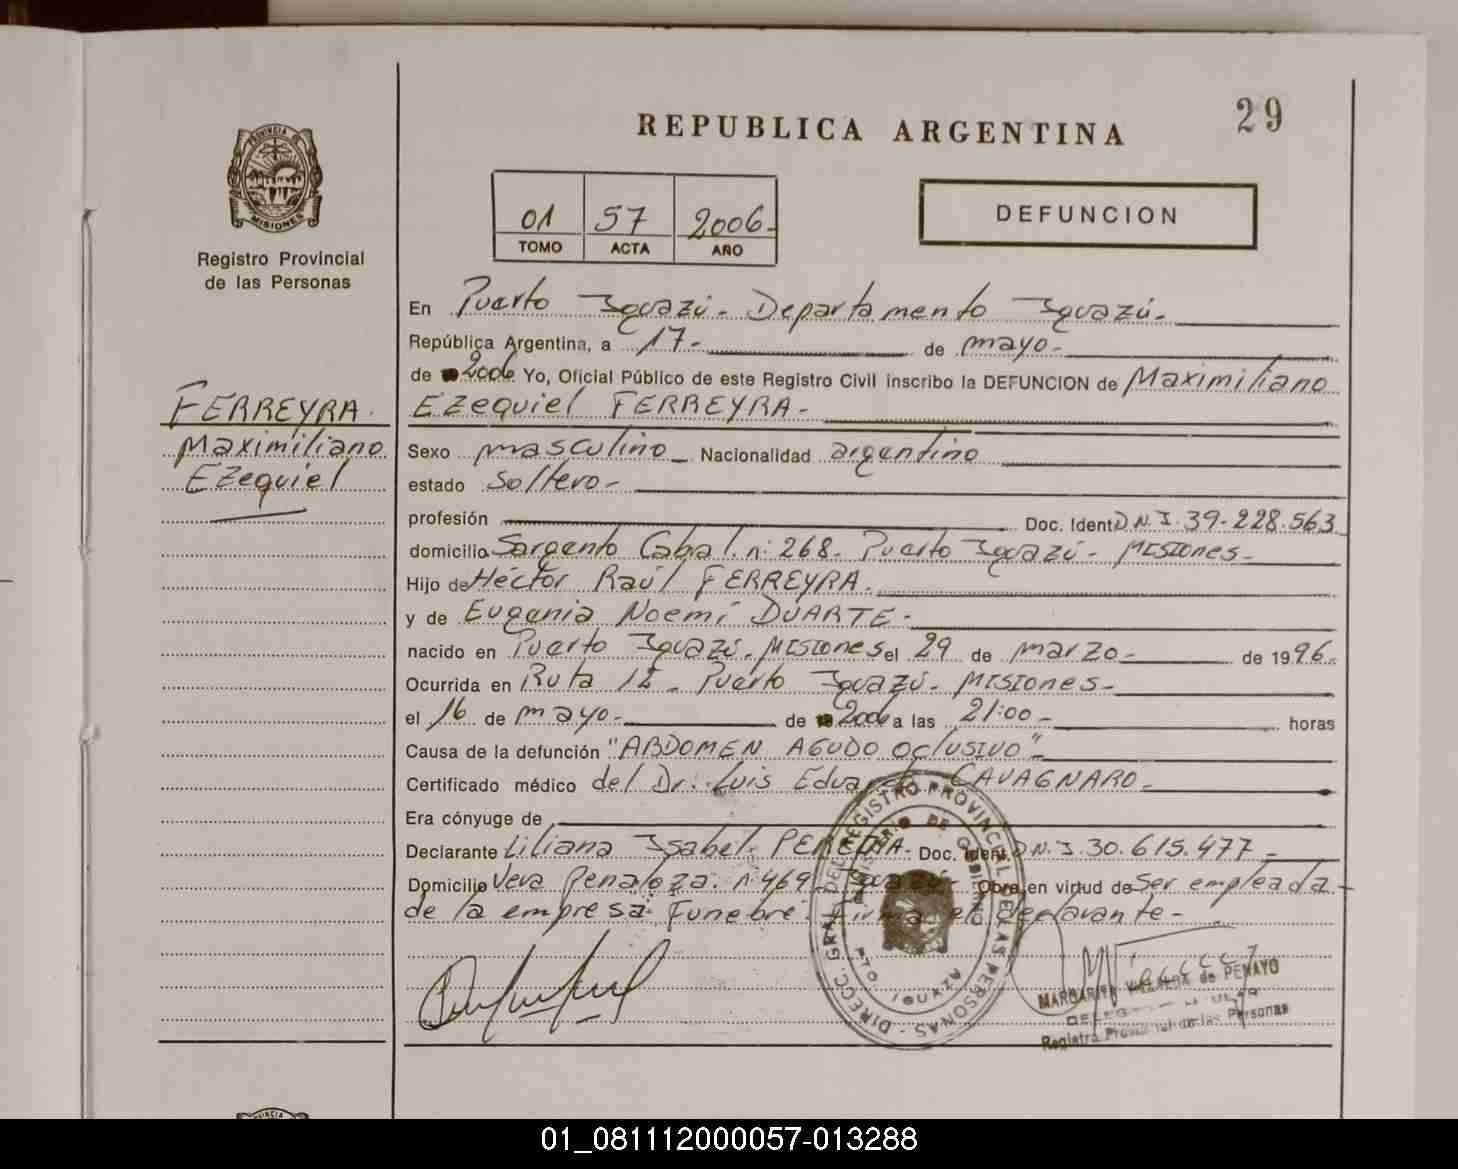 29
REPUBLICA ARGENTINA
PROVINCIA DE
MISIONES
Registro Provincial
de las Personas
01 57 2006-
TOMO ACTA AÑO
DEFUNCION
En Puerto Iguazú - Departamento Iguazú -
República Argentina, a 17- de mayo -
de 2006 Yo, Oficial Público de este Registro Civil inscribo la DEFUNCION de Maximiliano
Ezequiel FERREYRA -
FERREYRA.
Maximiliano
Ezequiel
Sexo masculino Nacionalidad argentino
estado Soltero -
profesión Doc. Ident D.N.I. 39-228.563
domicilio Sargento Cabral. n: 268- Puerto Iguazú - MISIONES -
Hijo de Héctor Raúl FERREYRA.
y de Eugenia Noemí DUARTE -
nacido en Puerto Iguazú - MISIONES el 29 de marzo - de 1996.
Ocurrida en Ruta 12 - Puerto Iguazú - MISIONES -
el 16 de mayo - de 2006 a las 21:00 - horas
Causa de la defunción "ABDOMEN AGUDO OCLUSIVO"
Certificado médico del Dr: Luis Eduardo CAVAGNARO -
Era cónyuge de
Declarante Liliana Isabel Doc. Ident. D.N.I. 30.615.477 -
Domicilio Vera Peñaloza. n: 469 - Iguazú - Obra en virtud de Ser empleada
de la empresa Funebre. Firma el declarante -
DIRECC. GRAL. DEL REGISTRO PROVINCIAL DE LAS PERSONAS -
MINISTERIO DE GOBIERNO
PTO. IGUAZU
MARGARITA de PENAYO
Registro Provincial de las Personas
PROVINCIA
01_081112000057-013288